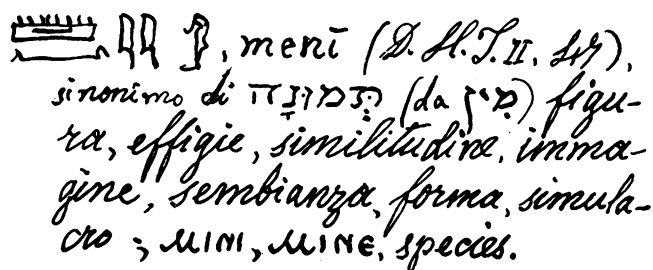 , menī (D. H. J. II, 47),
sinonimo di תְּמוּנָה (da מִין) figu-
ra, effigie, similitudine, imma-
gine, sembianza, forma, simula-
cro; ⲙⲓⲛⲓ, ⲙⲓⲛⲉ, species.